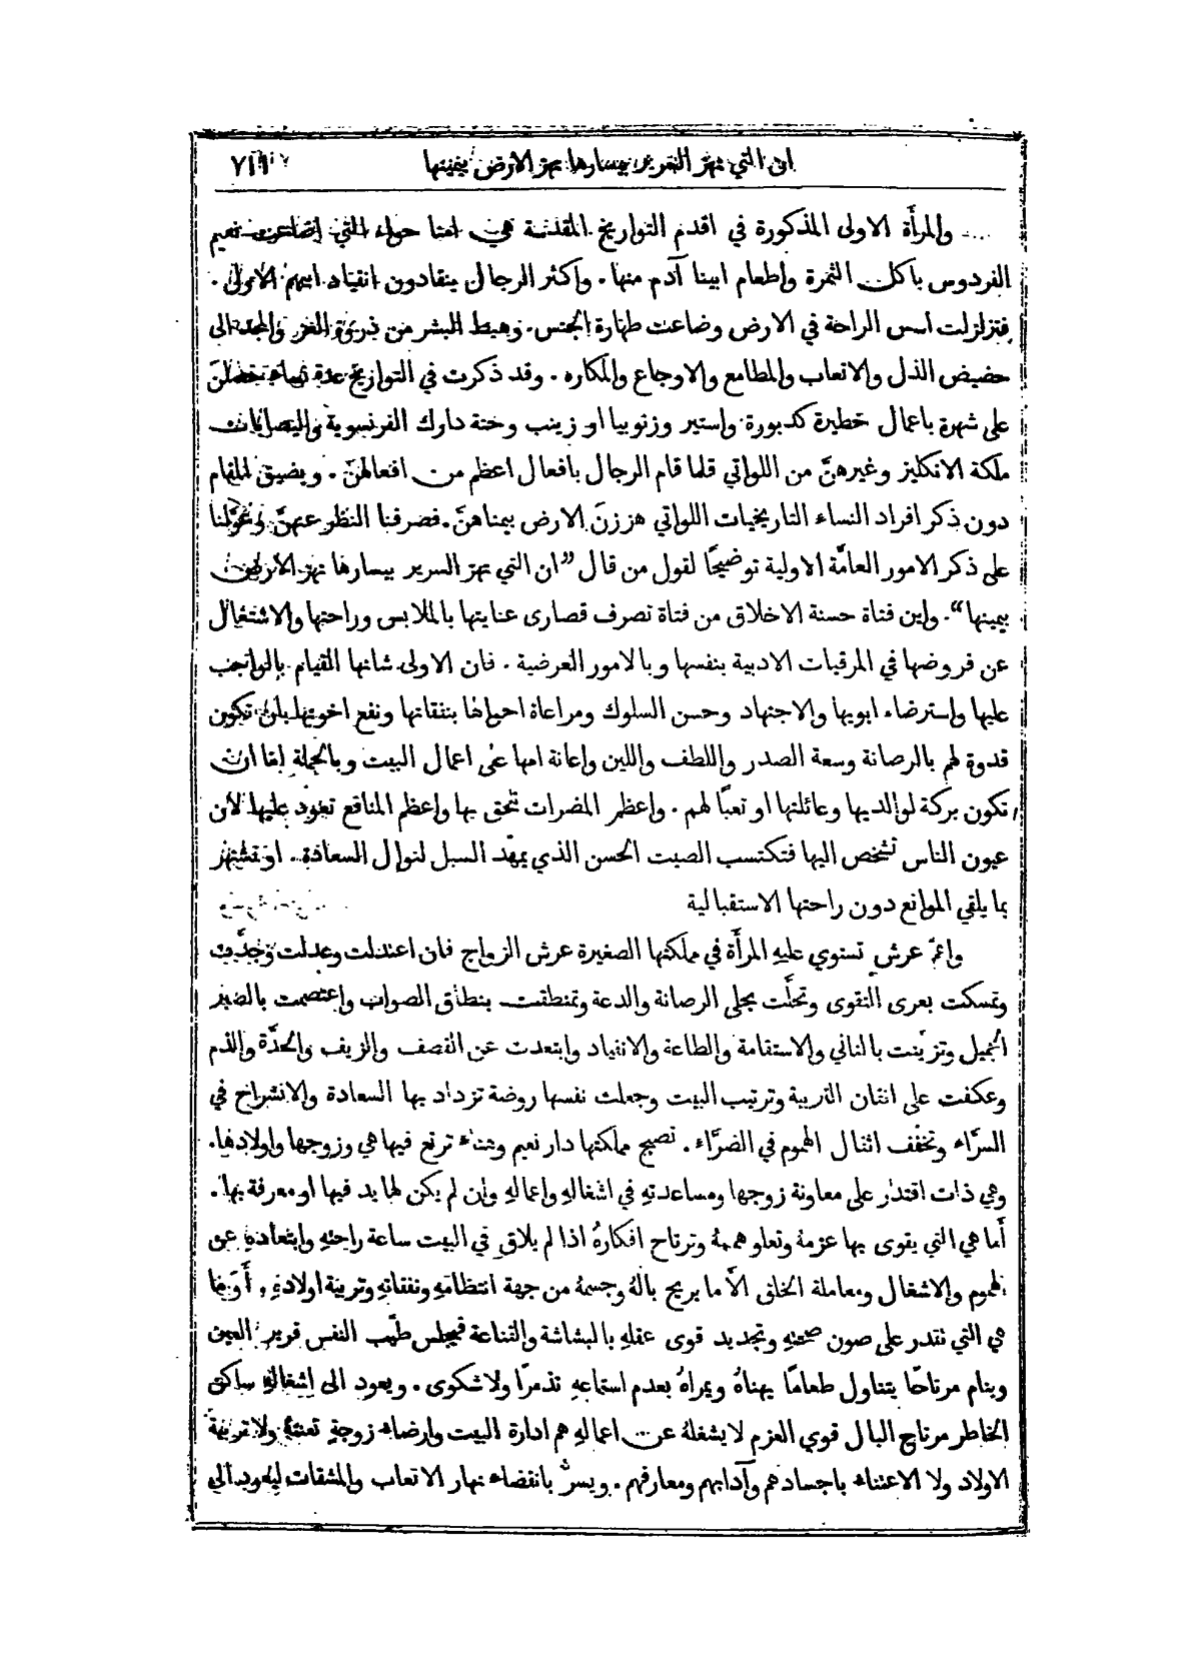 ان التي تهز السرير بيسارها تهز الارض بيمينها ٧١٩
والمرأة الاولى المذكورة في اقدم التواريخ المقدسة هي امنا حواء التي اضاعت نعيم
الفردوس باكل الثمرة واطعام ابينا آدم منها. واكثر الرجال ينقادون انقياد ابيهم الاول.
فتزلزلت اسس الراحة في الارض وضاعت طهارة الجنس. وهبط البشر من ذروة العز والمجد الى
حضيض الذل والاتعاب والمطامع والاوجاع والمكاره. وقد ذكرت في التواريخ عدة نساء حصلنَ
على شهرة باعمال خطيرة كدبورة واستير وزنوبيا او زينب وحنة دارك الفرنسوية واليصابات
ملكة الانكليز وغيرهنَّ من اللواتي قلما قام الرجال بافعال اعظم من افعالهنّ. ويضيق المقام
دون ذكر افراد النساء التاريخيات اللواتي هززنَ الارض بيمناهنَّ. فصرفنا النظر عنهنَّ وعوَّلنا
على ذكر الامور العامَّة الاولية توضيحًا لقول من قال ”ان التي تهز السرير بيسارها تهز الارض
بيمينها“. واين فتاة حسنة الاخلاق من فتاة تصرف قصارى عنايتها بالملابس وراحتها والاشتغال
عن فروضها في المرقيات الادبية بنفسها وبالامور العرضية. فان الاولى شانها القيام بالواجب
عليها واسترضاء ابويها والاجتهاد وحسن السلوك ومراعاة احوالها بنفقاتها ونفع اخوتها بان تكون
قدوة لهم بالرصانة وسعة الصدر واللطف واللين واعانة امها على اعمال البيت وبالجملة اما ان
تكون بركة لوالديها وعائلتها او تعبًا لهم. واعظم المضرات تلحق بها واعظم المنافع تعود عليها لان
عيون الناس تشخص اليها فتكتسب الصيت الحسن الذي يمهّد السبل لنوال السعادة. او تشتهر
بما يلقي الموانع دون راحتها الاستقبالية
واعزّ عرش تستوي عليهِ المرأَة في مملكتها الصغيرة عرش الزواج فان اعتدلت وعدلت وجدَّت
وتمسكت بعرى التقوى وتحلَّت بحلى الرصانة والدعة وتمنطقت بنطاق الصواب واعتصمت بالصبر
الجميل وتزيّنت بالتاني والاستقامة والطاعة والانقياد وابتعدت عن القصف والزيف والحدَّة والذم
وعكفت على اتقان التربية وترتيب البيت وجعلت نفسها روضة تزداد بها السعادة والانشراح في
السرَّاء وتخفّف اثقال الهموم في الضرَّاء. تصبح مملكتها دار نعيم وهناء ترتع فيها هي وزوجها واولادها.
وهي ذات اقتدار على معاونة زوجها ومساعدتهِ في اشغالهِ واعمالهِ وان لم يكن لها يد فيها او معرفة بها.
أما هي التي يقوى بها عزمهُ وتعلو هممهُ وترتاح افكارهُ اذا لم يلاقِ في البيت ساعة راحتهِ وابتعادهِ عن
الهموم والاشغال ومعاملة الخلق الَّا ما يريح بالهُ وجسمهُ من جهة انتظامهِ ونفقاتهِ وتربية اولادهِ. أَوَ ما
هي التي تقدر على صون صحتهِ وتجديد قوى عقلهِ بالبشاشة والقناعة فيجلس طيّب النفس قرير العين
وينام مرتاحًا يتناول طعامًا يهناهُ ويمراهُ بعدم استماعهِ تذمرًا ولا شكوى. ويعود الى اشغالهِ ساكن
الخاطر مرتاح البال قوي العزم لا يشغلهُ عن اعمالهِ هم ادارة البيت وارضاء زوجةٍ تعنتهُ ولا تربية
الاولاد ولا الاعتناء باجسادهم وآدابهم ومعارفهم. ويسرُّ بانقضاء نهار الاتعاب والمشقات ليعود الى